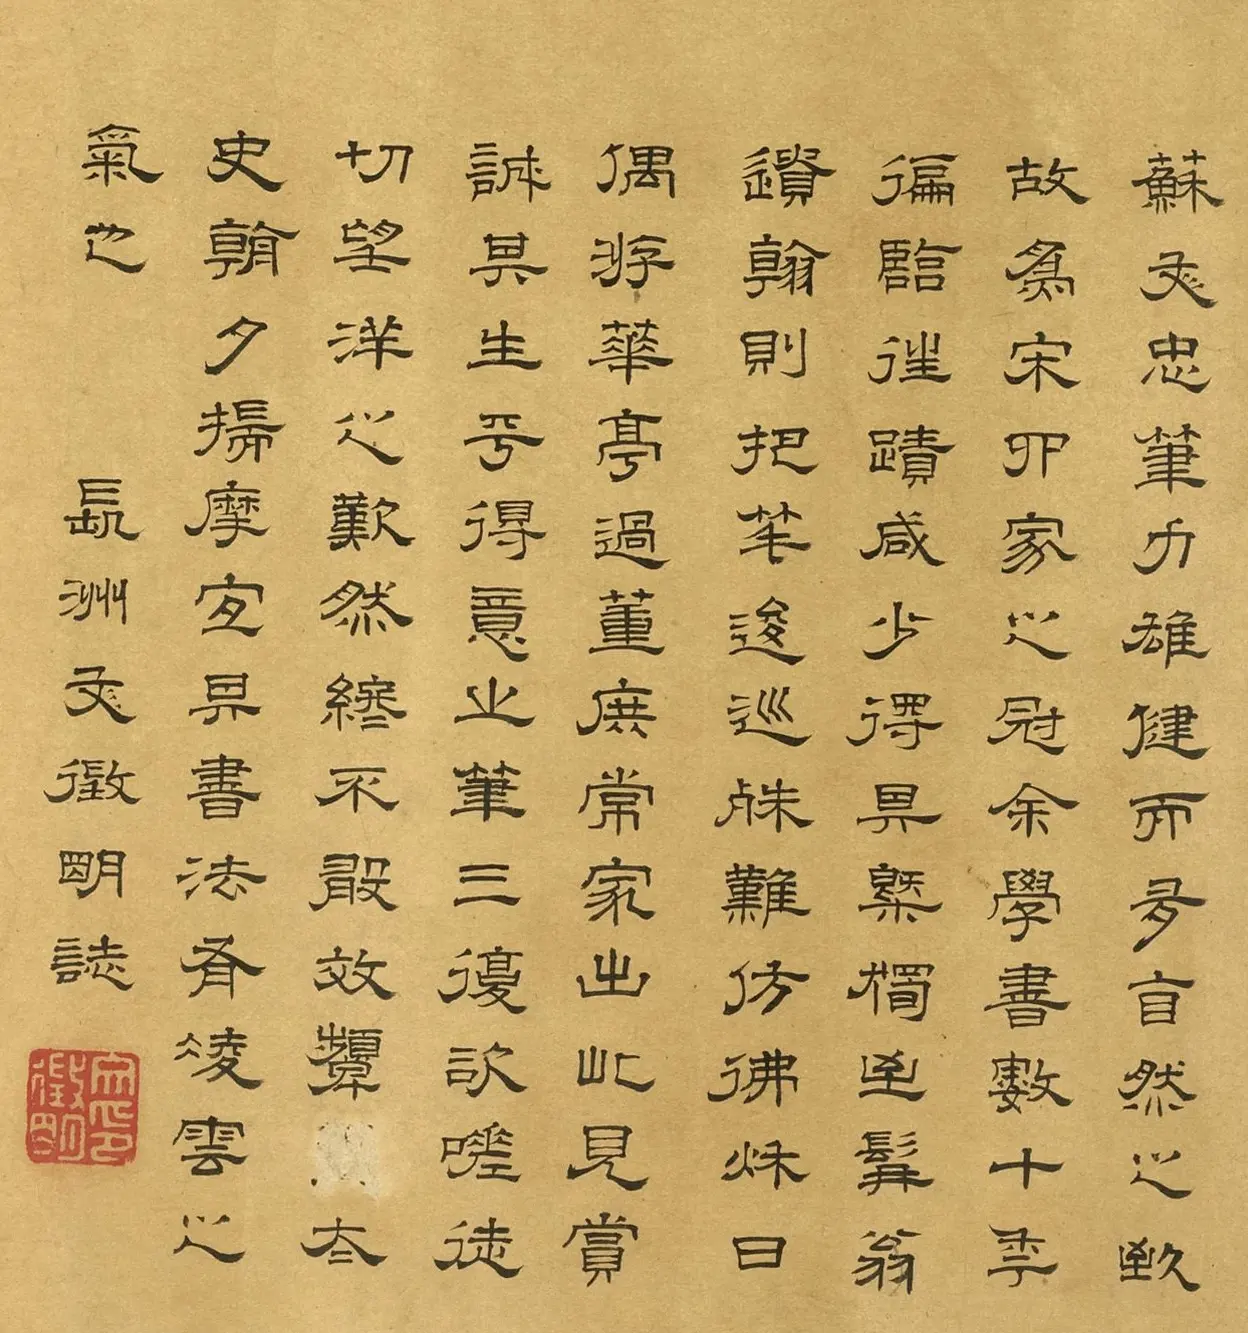 蘇文忠筆力雄健而多自然之致
故為宋四家之冠余學書數十年
徧臨往蹟咸少得其槩獨至髯翁
遺翰則把筆逡巡殊難仿彿秋日
偶游華亭過董庶常家出此見賞
誠其生平得意之筆三復欣嗟徒
切望洋之歎然終不敢效顰太
史朝夕揣摩宜其書法有凌雲之
氣也 長洲文徵明誌
文印徵明